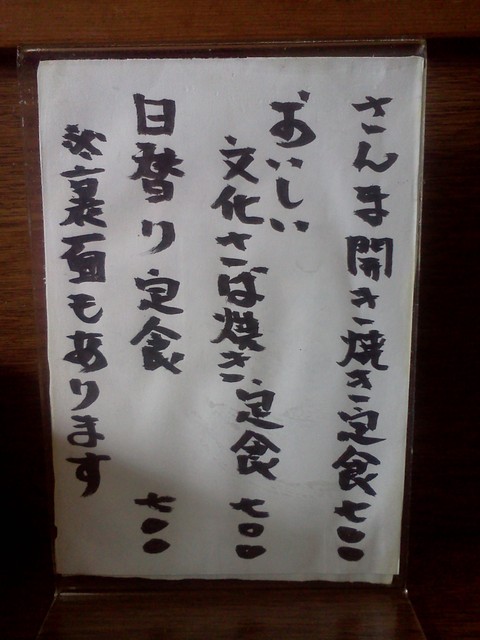 さんま開き焼き定食七〇〇
おいしい
文化さば焼き定食七〇〇
日替り定食七〇〇
※裏面もあります